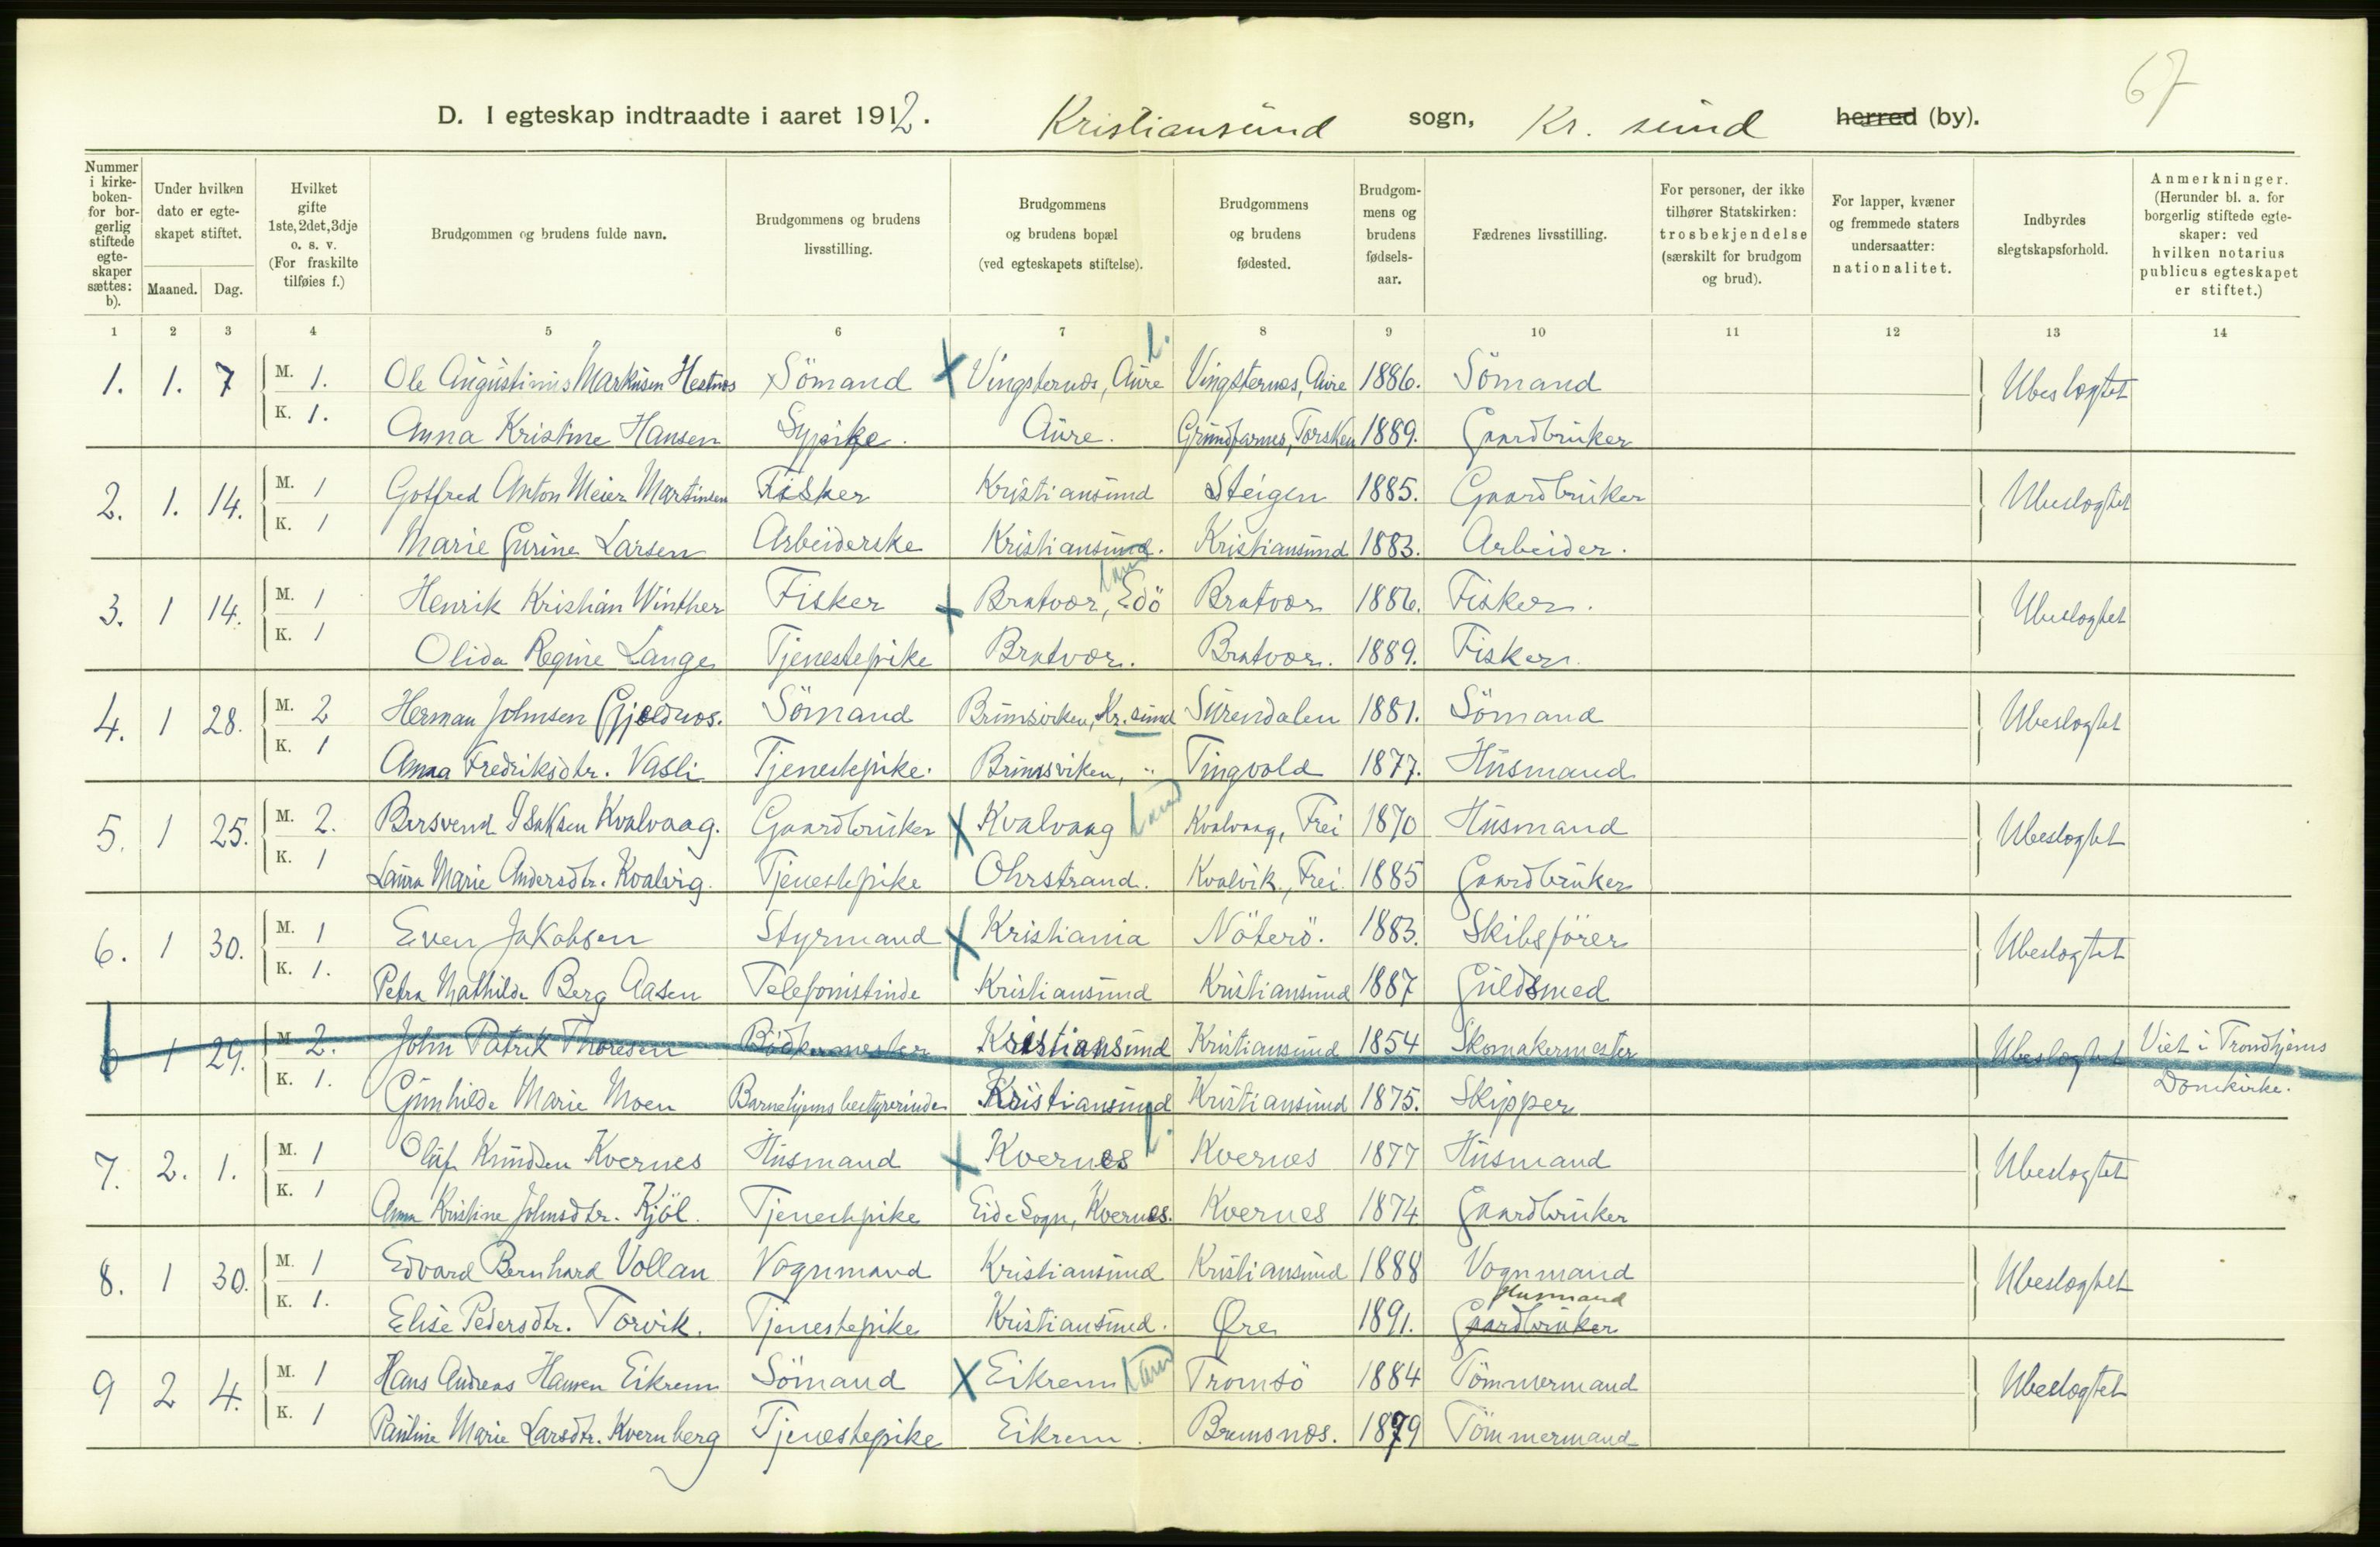 67
D. I egteskap indtraadte i aaret 1912. Kristiansund sogn, Kr. sund herred (by).
Nummer i kirkeboken for borgerlig stiftede egteskaper sættes: b).
Under hvilken dato er egteskapet stiftet.
Maaned. Dag.
Hvilket gifte 1ste, 2det, 3dje o. s. v. (For fraskilte tilføies f.)
Brudgommen og brudens fulde navn.
Brudgommens og brudens livsstilling.
Brudgommens og brudens bopæl (ved egteskapets stiftelse).
Brudgommens og brudens fødested.
Brudgommens og brudens fødselsaar.
Fædrenes livsstilling.
For personer, der ikke tilhører Statskirken: trosbekjendelse (særskilt for brudgom og brud).
For lapper, kvæner og fremmede staters undersaatter: nationalitet.
Indbyrdes slegtskapsforhold.
Anmerkninger. (Herunder bl. a. for borgerlig stiftede egteskaper: ved hvilken notarius publicus egteskapet er stiftet.)
1 2 3 4 5 6 7 8 9 10 11 12 13 14
1. 1. 7 M. 1. Ole Augustinus Markusen Hestnes Sömand X Vingsternes, Aure L. Vingsternes, Aure 1886. Sömand Ubeslegtet
K. 1. Anna Kristine Hansen Sypike. Aure. Grundfarnes, Torsken 1889. Gaardbruker
2. 1. 14. M. 1 Gotfred Anton Meier Martinsen Fisker Kristiansund Steigen 1885. Gaardbruker Ubeslegtet
K. 1 Marie Gurine Larsen Arbeiderske Kristiansund. Kristiansund 1883. Arbeider.
3. 1 14. M. 1 Henrik Kristian Winther Fisker X Bratvær, Edö Land Bratvær 1886. Fisker. Ubeslegtet
K. 1 Olida Regine Lange Tjenestepike Bratvær. Bratvær. 1889. Fisker.
4. 1 28. M. 2 Herman Johnsen Gjeldnes. Sömand Brunsviken, Kr. sund Surendalen 1881. Sömand Ubeslegtet
K. 1 Anna Fredriksdtr. Vasli Tjenestepike. Brunsviken, " Tingvold 1877. Husmand
5. 1 25. M. 2. Bersvend Isaksen Kvalvaag. Gaardbruker X Kvalvaag Land Kvalvaag, Frei 1870 Husmand Ubeslegtet
K. 1 Laura Marie Andersdtr. Kvalvig. Tjenestepike Ohrstrand. Kvalvik, Frei. 1885 Gaardbruker
6. 1 30. M. 1 Even Jakobsen Styrmand X Kristiania Nöterö. 1883. Skibsförer Ubeslegtet
K. 1. Petra Mathilde Berg Aasen Telefonistinde Kristiansund Kristiansund 1887 Guldsmed
6 1 29. M. 2. John Patrik Thoresen Bödkermester Kristiansund Kristiansund 1854 Skomakermester Ubeslegtet Viet i Trondhjems
K. 1. Gunhilde Marie Moen Barnehjems bestyrerinde Kristiansund Kristiansund 1875. Skipper Domkirke.
7. 2. 1. M. 1 Oluf Knudsen Kvernes Husmand X Kvernes L. Kvernes 1877 Husmand Ubeslegtet
K. 1 Anna Kristine Johnsdtr. Kjöl. Tjenestepike Eide Sogn, Kvernes. Kvernes 1874 Gaardbruker
8. 1 30. M. 1 Edvard Bernhard Vollan Vognmand Kristiansund Kristiansund 1888 Vognmand Ubeslegtet
Husmand
K. 1. Elise Pedersdtr. Torvik. Tjenestepike Kristiansund. Øre 1891. Gaardbruker
9 2 4. M. 1 Hans Andreas Hansen Eikrem Sömand X Eikrem Land Tromsö 1884 Tömmermand Ubeslegtet
K. 1 Pauline Marie Larsdtr. Kvernberg Tjenestepike Eikrem. Bremsnes. 1879 Tömmermand